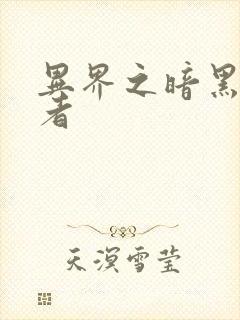 異界之暗黑
者
天溟雪莹